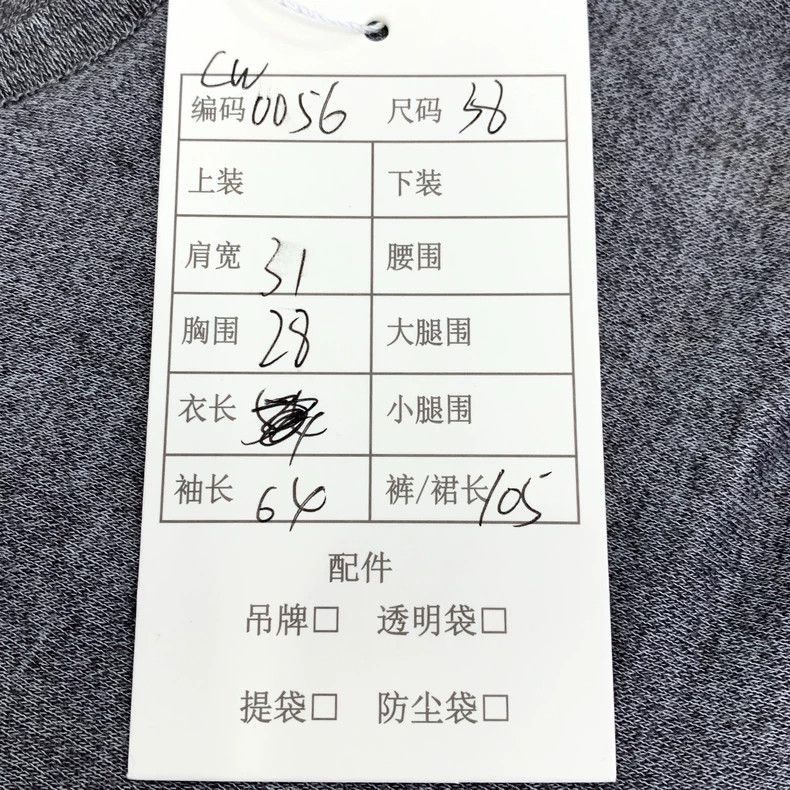 CW
编码 0056 尺码 38
上装 下装
肩宽 31 腰围
胸围 28 大腿围
衣长 小腿围
袖长 64 裤/裙长 105
配件
吊牌□ 透明袋□
提袋□ 防尘袋□